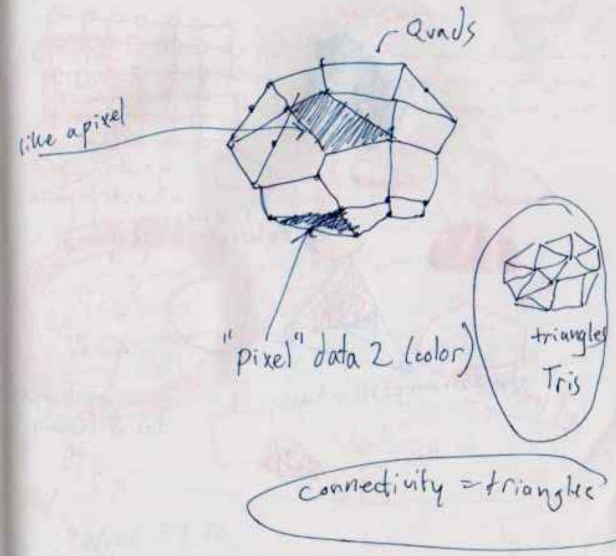 Quads
like a pixel
"pixel" data 2 (color)
triangles
Tris
connectivity = triangles